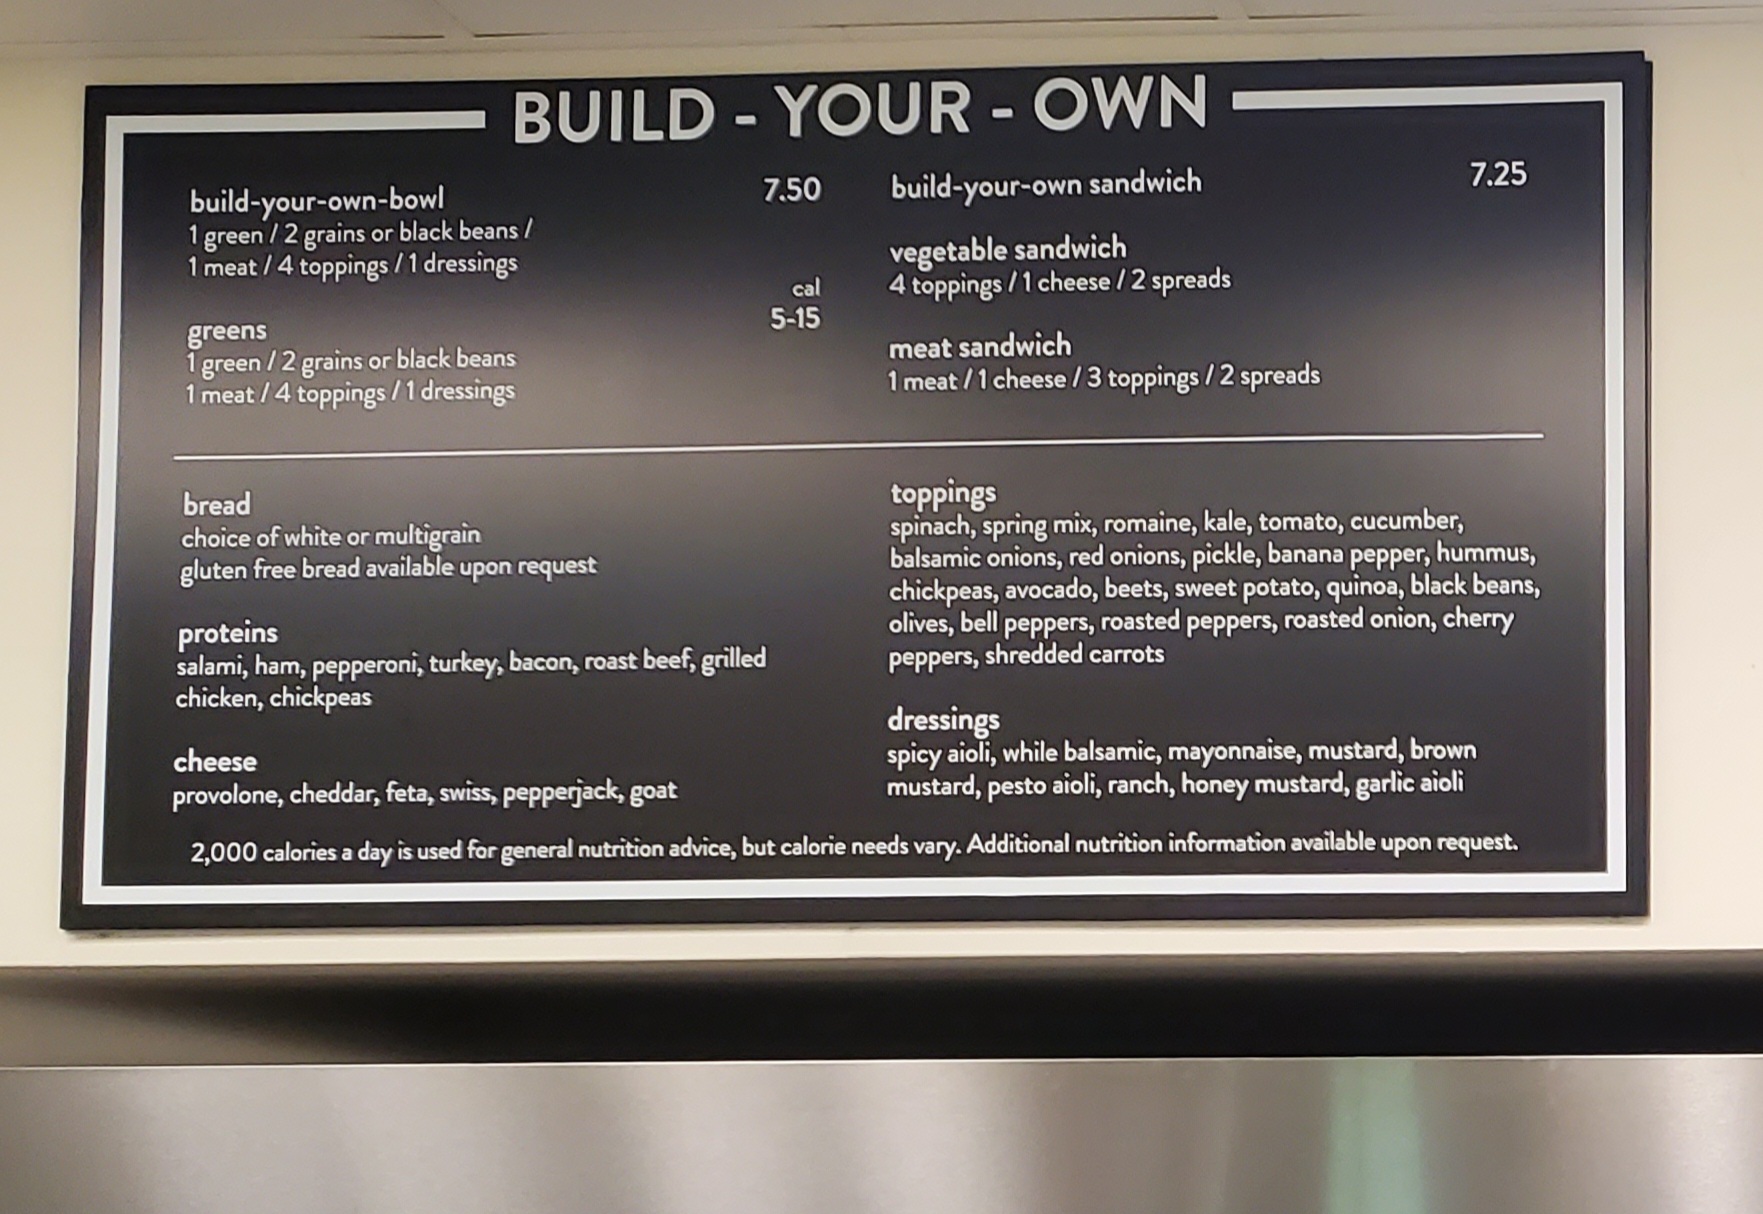 BUILD - YOUR - OWN
build-your-own-bowl 7.50
1 green / 2 grains or black beans /
1 meat / 4 toppings / 1 dressings
cal
5-15
greens
1 green / 2 grains or black beans
1 meat / 4 toppings / 1 dressings
build-your-own sandwich 7.25
vegetable sandwich
4 toppings / 1 cheese / 2 spreads
meat sandwich
1 meat / 1 cheese / 3 toppings / 2 spreads
bread
choice of white or multigrain
gluten free bread available upon request
proteins
salami, ham, pepperoni, turkey, bacon, roast beef, grilled
chicken, chickpeas
cheese
provolone, cheddar, feta, swiss, pepperjack, goat
toppings
spinach, spring mix, romaine, kale, tomato, cucumber,
balsamic onions, red onions, pickle, banana pepper, hummus,
chickpeas, avocado, beets, sweet potato, quinoa, black beans,
olives, bell peppers, roasted peppers, roasted onion, cherry
peppers, shredded carrots
dressings
spicy aioli, while balsamic, mayonnaise, mustard, brown
mustard, pesto aioli, ranch, honey mustard, garlic aioli
2,000 calories a day is used for general nutrition advice, but calorie needs vary. Additional nutrition information available upon request.